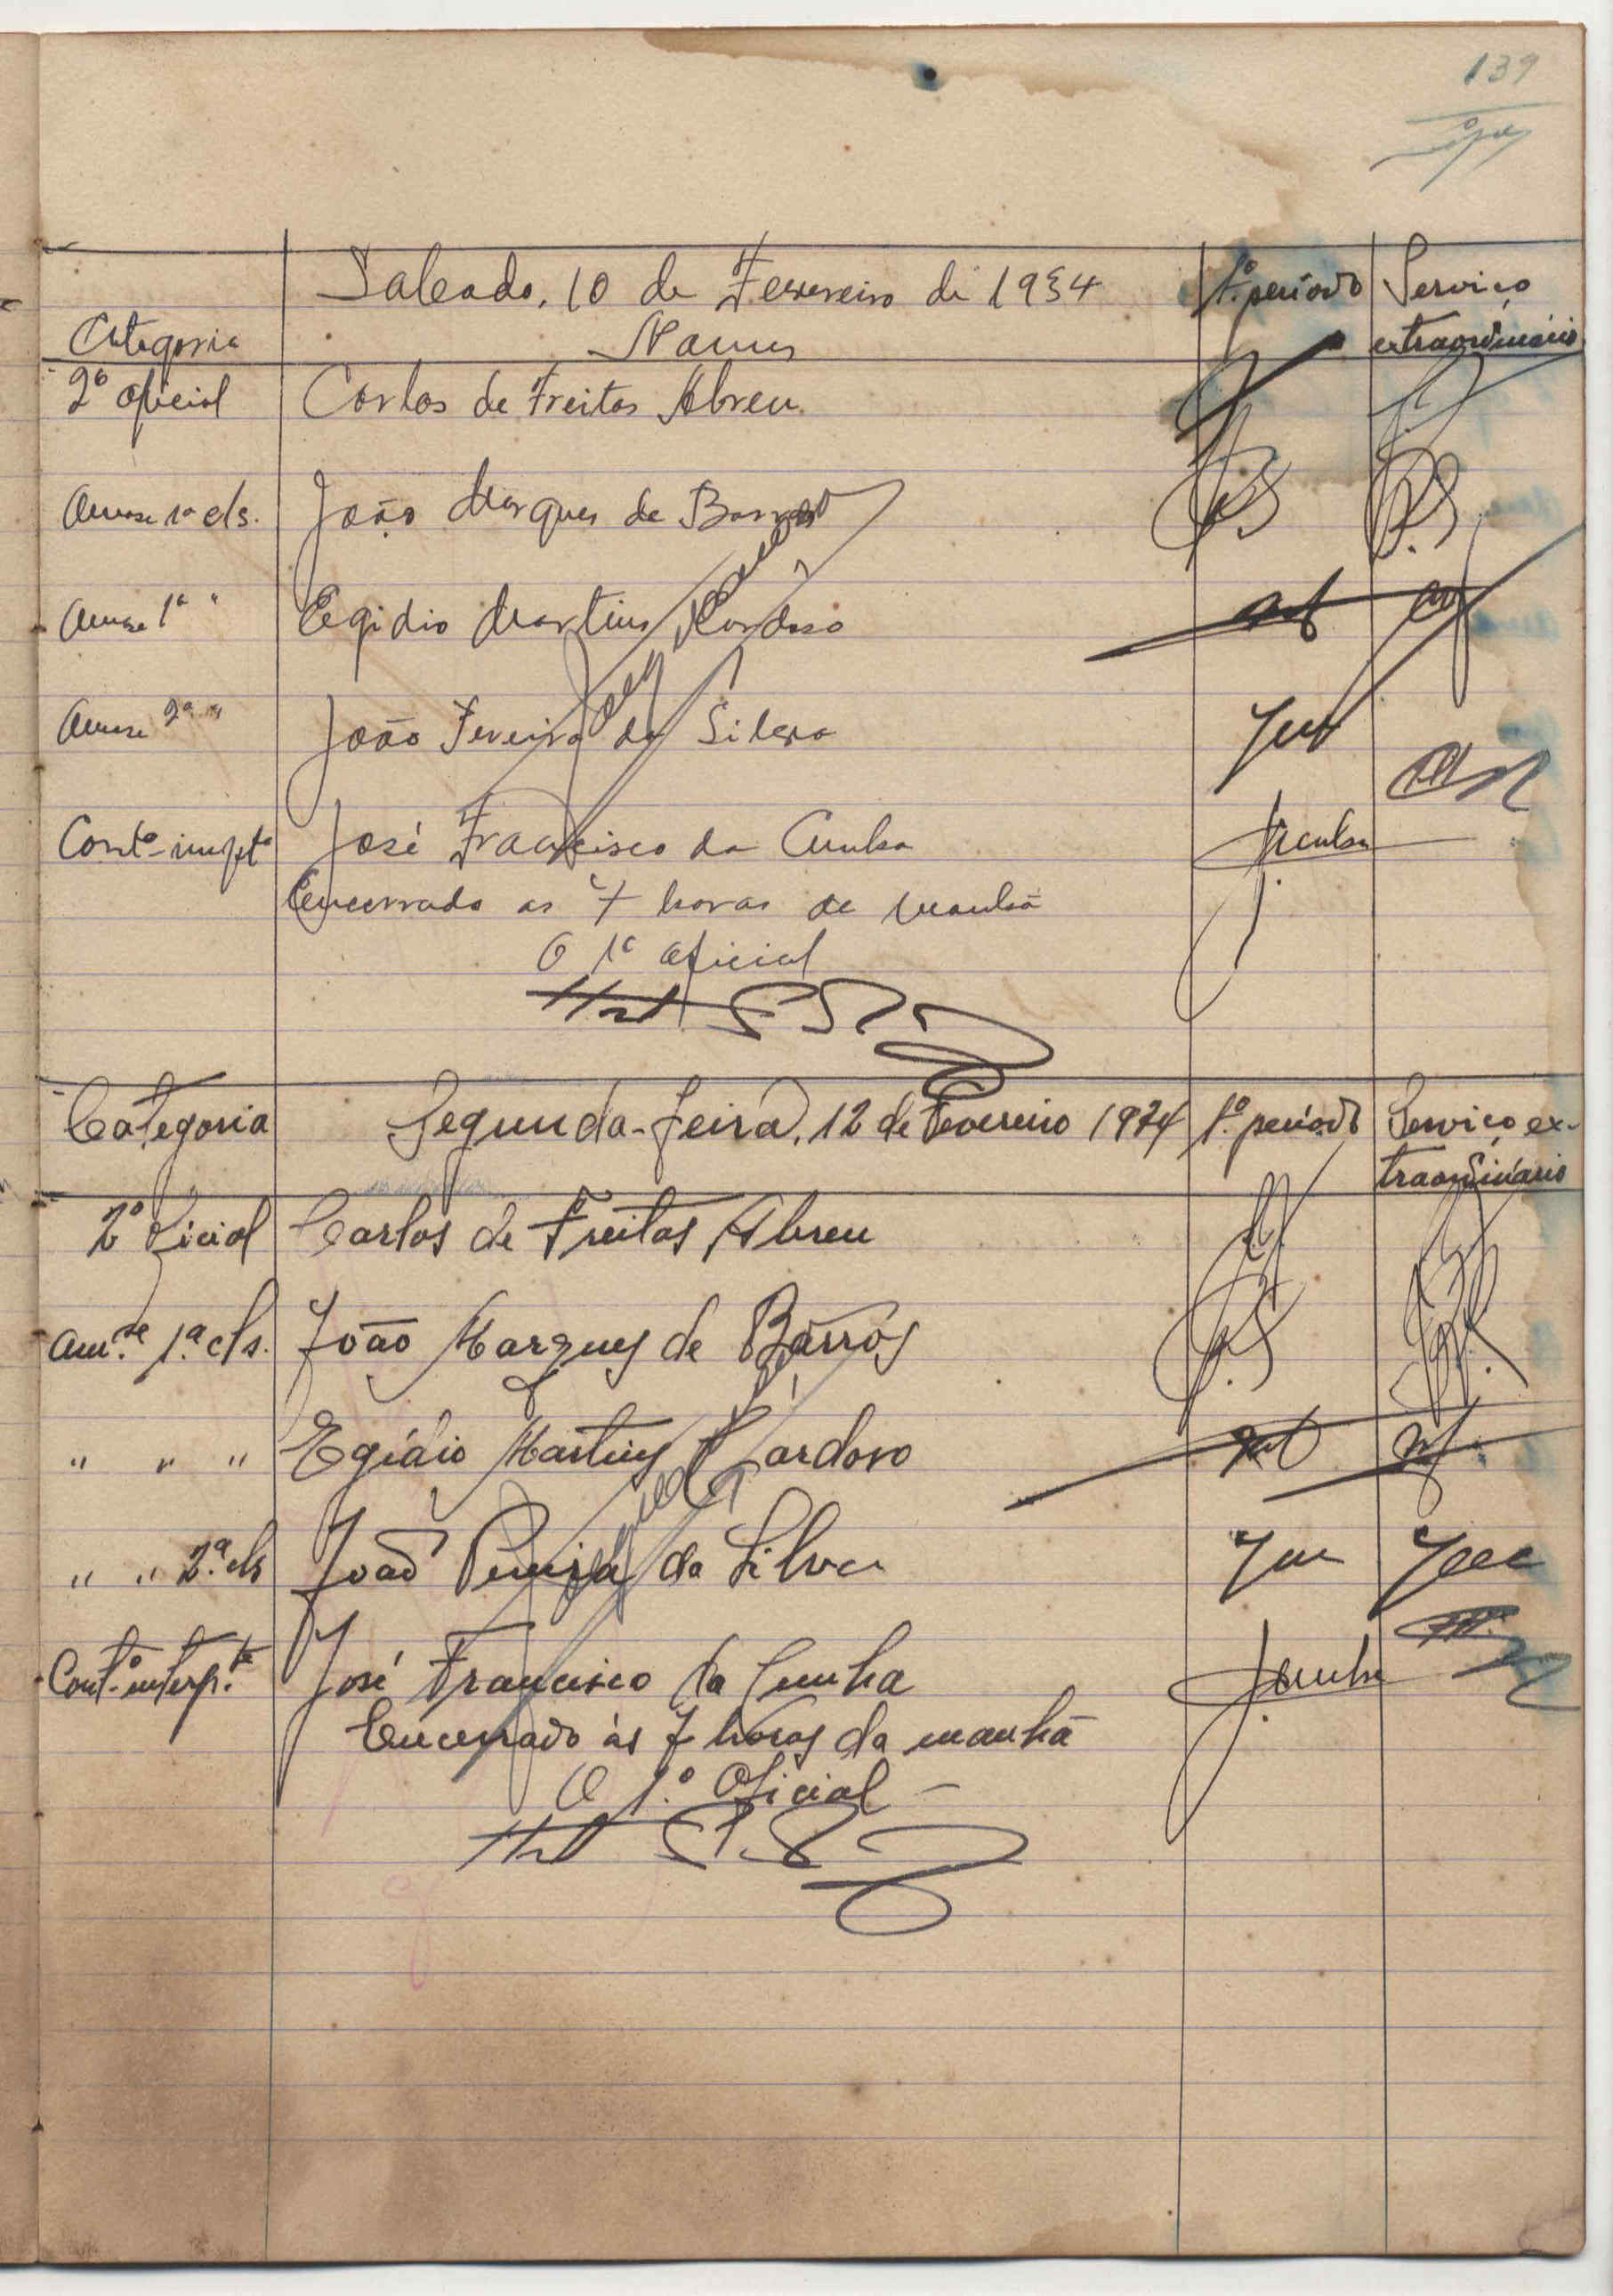 139
Sabado, 10 de Fevereiro de 1934 1º periodo Serviço
Categoria Nomes extraordinário
2º oficial Carlos de Freitas Abreu
Amase 1ª cls. João Marques de Barros
Amase 1ª " Egidio Martins Cardoso
Amase 2ª " João Pereira da Silva
José Francisco da Cunha JCunha
Encerrado as 7 horas da manhã
O 1º oficial
Categoria Segunda-feira, 12 de Fevereiro 1934 1º periodo Serviço ex-
traordinário
2º oficial Carlos de Freitas Abreu
am.se 1ª cls. João Marques de Barros
" " " Egídio Martins Cardoso
" " 2ª cls João Pereira da Silva
Cont.º interp.te José Francisco da Cunha JCunha
Encerrado às 7 horas da manhã
O 1.º Oficial